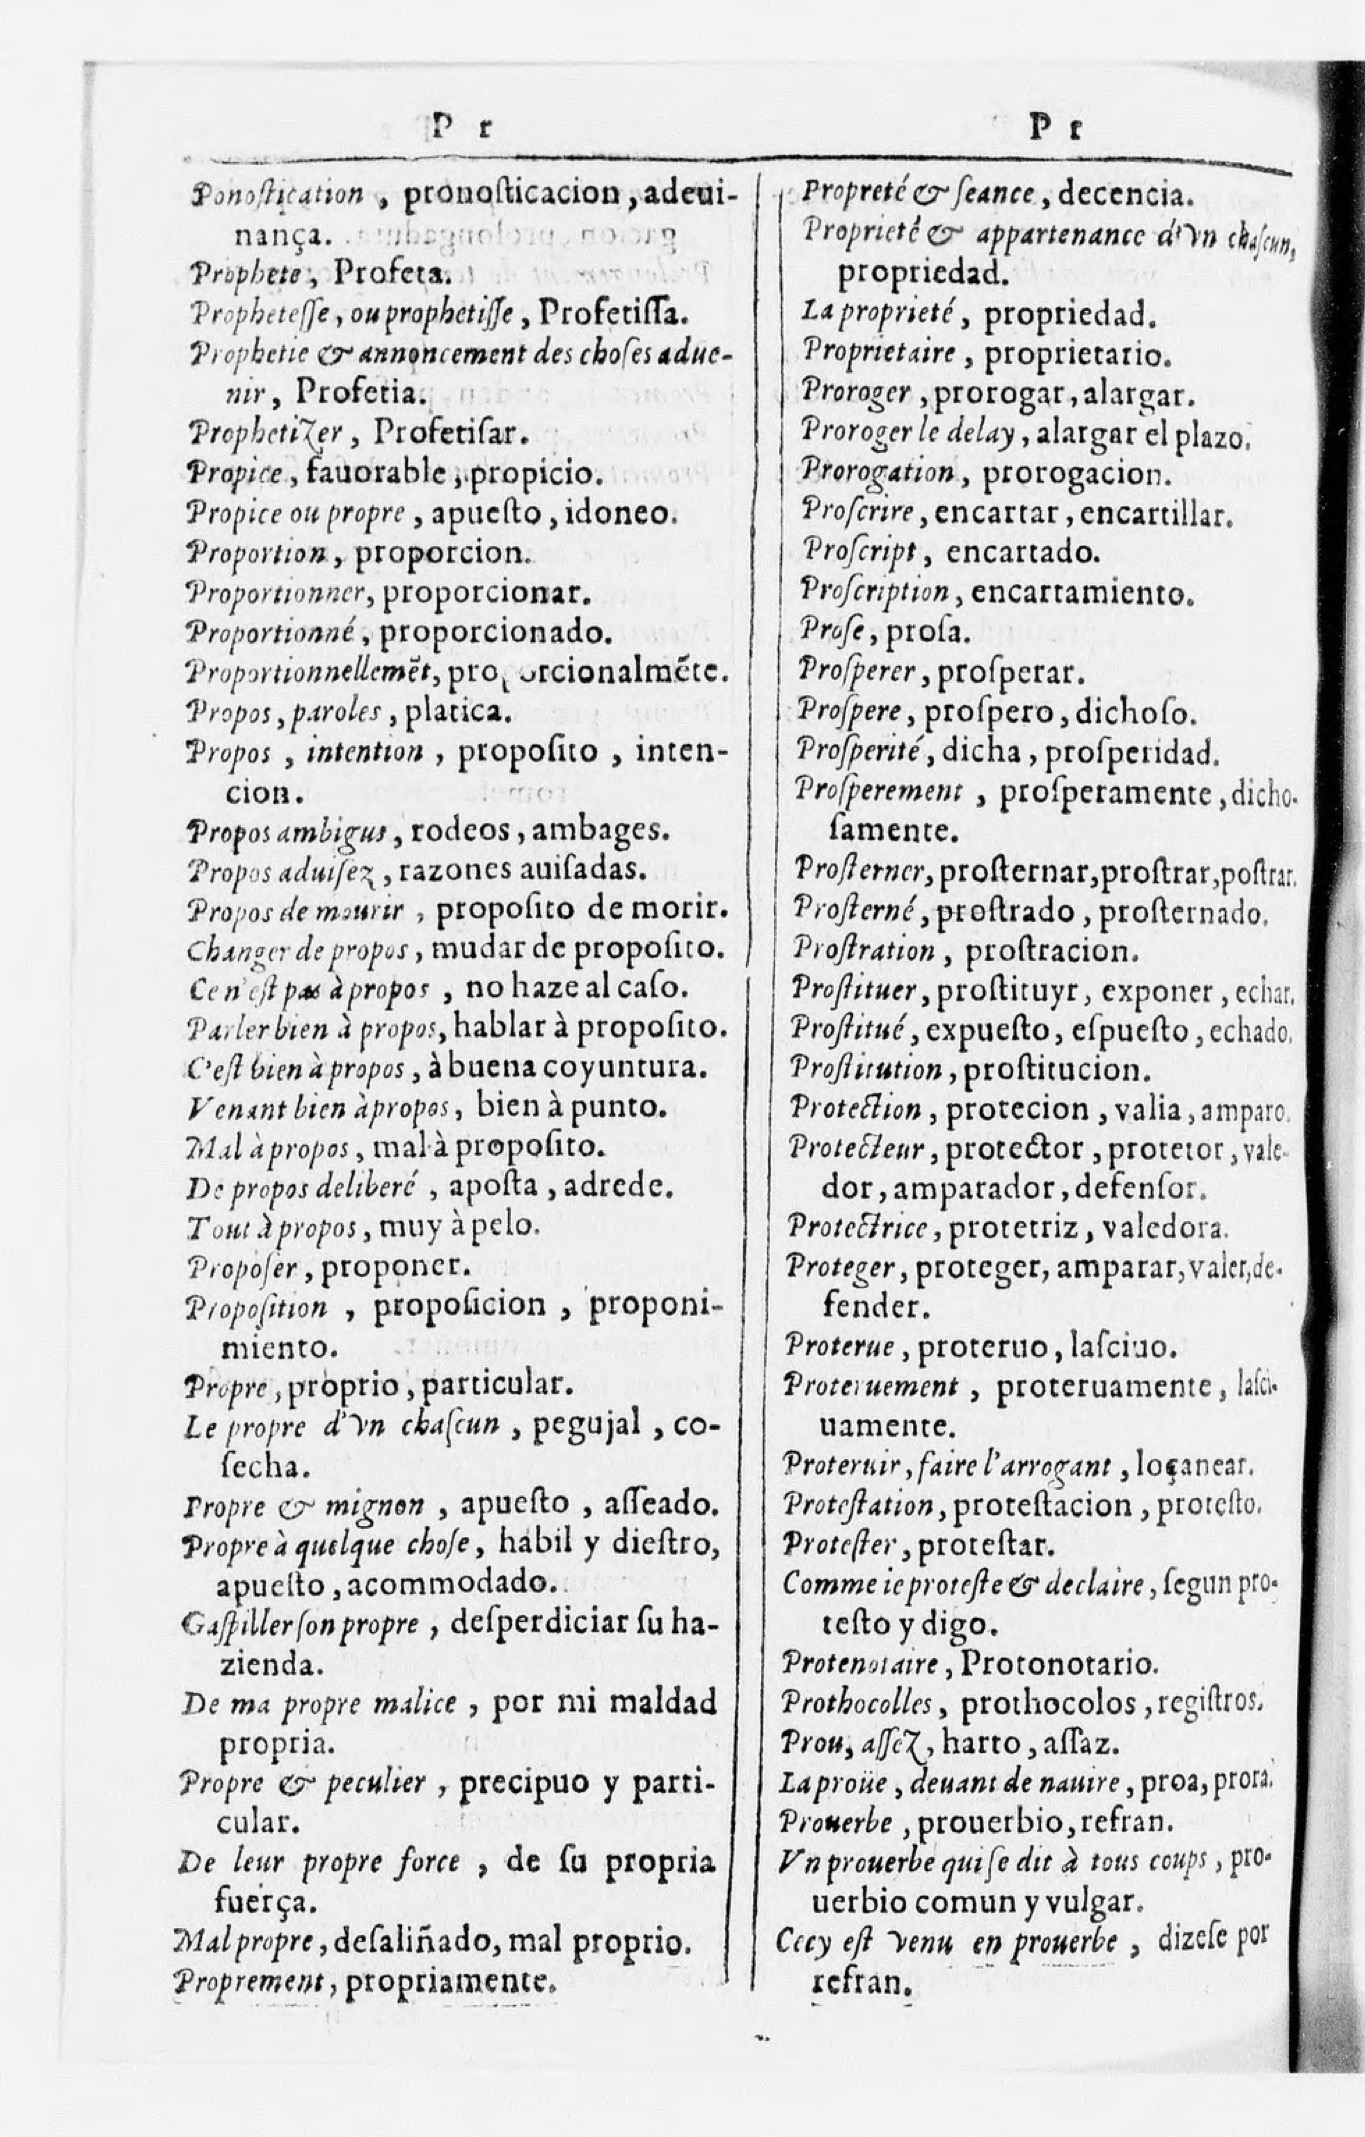 P r
Ponoſtication, pronoſticacion, adeui-
nança.
Prophete, Profeta.
Propheteſſe, ou prophetiſſe, Profetiſſa.
Prophetie & annoncement des choſes adue-
nir, Profetia.
Prophetizer, Profetiſar.
Propice, fauorable, propicio.
Propice ou propre, apueſto, idoneo.
Proportion, proporcion.
Proportionner, proporcionar.
Proportionné, proporcionado.
Proportionnellemẽt, proporcionalmẽte.
Propos, paroles, platica.
Propos, intention, propoſito, inten-
cion.
Propos ambigus, rodeos, ambages.
Propos aduiſez, razones auiſadas.
Propos de mourir, propoſito de morir.
Changer de propos, mudar de propoſito.
Ce n'eſt pas à propos, no haze al caſo.
Parler bien à propos, hablar à propoſito.
C'eſt bien à propos, à buena coyuntura.
Venant bien à propos, bien à punto.
Mal à propos, mal à propoſito.
De propos deliberé, apoſta, adrede.
Tout à propos, muy à pelo.
Propoſer, proponer.
Propoſition, propoſicion, proponi-
miento.
Propre, proprio, particular.
Le propre d'vn chaſcun, pegujal, co-
ſecha.
Propre & mignon, apueſto, aſſeado.
Propre à quelque choſe, habil y dieſtro,
apueſto, acommodado.
Gaſpiller ſon propre, deſperdiciar ſu ha-
zienda.
De ma propre malice, por mi maldad
propria.
Propre & peculier, precipuo y parti-
cular.
De leur propre force, de ſu propria
fuerça.
Mal propre, deſaliñado, mal proprio.
Proprement, propriamente.
P r
Propreté & ſeance, decencia.
Proprieté & appartenance d'vn chaſcun,
propriedad.
La proprieté, propriedad.
Proprietaire, proprietario.
Proroger, prorogar, alargar.
Proroger le delay, alargar el plazo.
Prorogation, prorogacion.
Proſcrire, encartar, encartillar.
Proſcript, encartado.
Proſcription, encartamiento.
Proſe, proſa.
Proſperer, proſperar.
Proſpere, proſpero, dichoſo.
Proſperité, dicha, proſperidad.
Proſperement, proſperamente, dicho-
ſamente.
Proſterner, proſternar, proſtrar, poſtrar.
Proſterné, proſtrado, proſternado.
Proſtration, proſtracion.
Proſtituer, proſtituyr, exponer, echar.
Proſtitué, expueſto, eſpueſto, echado.
Proſtitution, proſtitucion.
Protection, protecion, valia, amparo.
Protecteur, protector, protetor, vale-
dor, amparador, defenſor.
Protectrice, protetriz, valedora.
Proteger, proteger, amparar, valer, de-
fender.
Proterue, proteruo, laſciuo.
Proteruement, proteruamente, laſci-
uamente.
Proteruir, faire l'arrogant, loçanear.
Proteſtation, proteſtacion, proteſto.
Proteſter, proteſtar.
Comme ie proteſte & declaire, ſegun pro-
teſto y digo.
Protenotaire, Protonotario.
Prothocolles, prothocolos, regiſtros.
Prou, aſſez, harto, aſſaz.
La proüe, deuant de nauire, proa, prora.
Prouerbe, prouerbio, refran.
Vn prouerbe qui ſe dit à tous coups, pro-
uerbio comun y vulgar.
Cecy eſt venu en prouerbe, dizeſe por
refran.